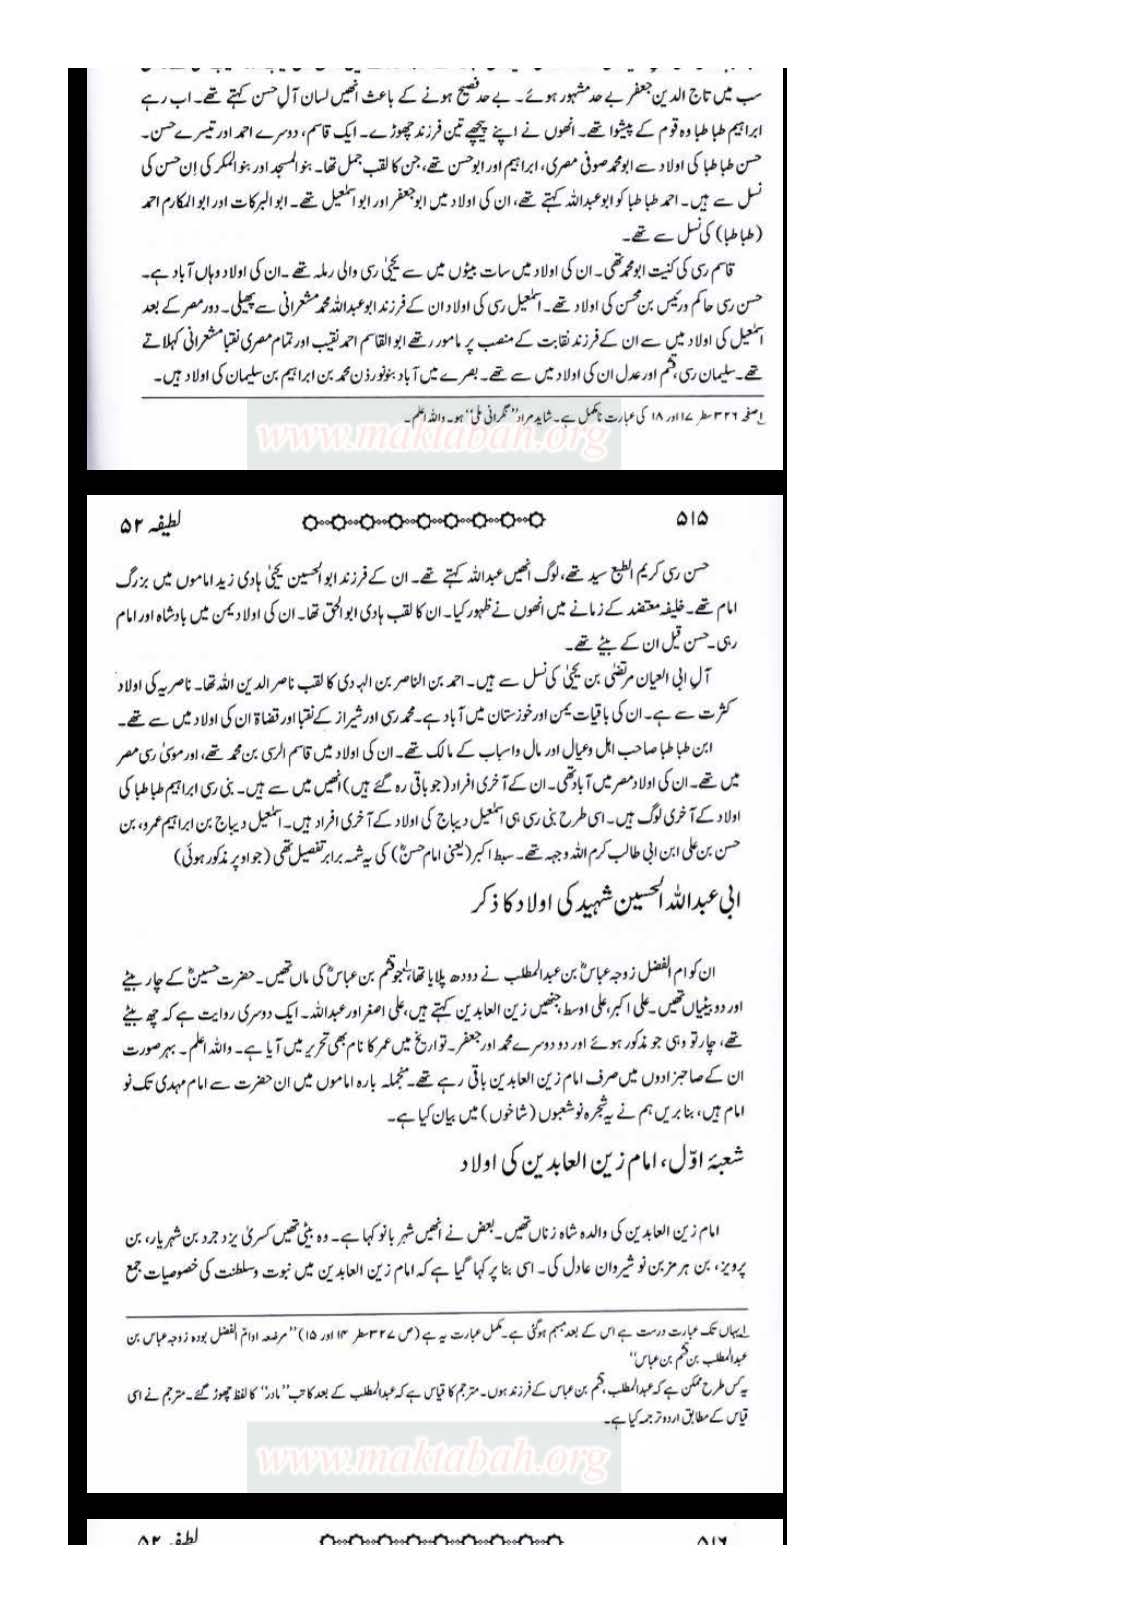 سب میں تاج الدین جعفر بے حد مشہور ہوئے۔ بے حد فصیح ہونے کے باعث انھیں لسان آلِ حسن کہتے تھے۔ اب رہے
ابراہیم طبا طبا وہ قوم کے پیشوا تھے۔ انھوں نے اپنے پیچھے تین فرزند چھوڑے۔ ایک قاسم، دوسرے احمد اور تیسرے حسن۔
حسن طبا طبا کی اولاد سے ابو محمد صوفی مصری، ابراہیم اور ابو حسن تھے، جن کا لقب جمل تھا۔ بنو المسجد اور بنو المکر کی اِن حسن کی
نسل سے ہیں۔ احمد طبا طبا کو ابو عبد اللہ کہتے تھے، ان کی اولاد میں ابو جعفر اور ابو اسمٰعیل تھے۔ ابو البرکات اور ابو المکارم احمد
(طبا طبا) کی نسل سے تھے۔
قاسم رسی کی کنیت ابو محمد تھی۔ ان کی اولاد میں سات بیٹوں میں سے یحییٰ رسی والی رملہ تھے۔ ان کی اولاد وہاں آباد ہے۔
حسن رسی حاکم و رئیس بن محسن کی اولاد تھے۔ اسمٰعیل رسی کی اولاد ان کے فرزند ابو عبد اللہ محمد مشعرانی سے پھیلی۔ دورِ مصر کے بعد
اسمٰعیل کی اولاد میں سے ان کے فرزند نقابت کے منصب پر مامور رہے ابو القاسم احمد نقیب اور تمام مصری نقبا مشعرانی کہلاتے
تھے۔ سلیمان رسی، قثم اور عدل ان کی اولاد میں سے تھے۔ بصرے میں آباد بنو نورذن محمد بن ابراہیم بن سلیمان کی اولاد ہیں۔
۱؎ صفحہ ۳۲۶ سطر ۱۷ اور ۱۸ کی عبارت نامکمل ہے۔ شاید مراد ’’نگرانی ملی‘‘ ہو۔ واللہ اعلم۔
www.maktabah.org
۵۱۵ لطیفہ ۵۲
حسن رسی کریم الطبع سید تھے، لوگ انھیں عبد اللہ کہتے تھے۔ ان کے فرزند ابو الحسین یحییٰ ہادی زید اماموں میں بزرگ
امام تھے۔ خلیفہ معتضد کے زمانے میں انھوں نے ظہور کیا۔ ان کا لقب ہادی ابو الحق تھا۔ ان کی اولاد یمن میں بادشاہ اور امام
رہی۔ حسن قیل ان کے بیٹے تھے۔
آلِ ابی العیان مرتضیٰ بن یحییٰ کی نسل سے ہیں۔ احمد بن الناصر بن الہادی کا لقب ناصر الدین اللہ تھا۔ ناصریہ کی اولاد
کثرت سے ہے۔ ان کی باقیات یمن اور خوزستان میں آباد ہے۔ محمد رسی اور شیراز کے نقبا اور قضاۃ ان کی اولاد میں سے تھے۔
ابن طبا طبا صاحب اہل و عیال اور مال و اسباب کے مالک تھے۔ ان کی اولاد میں قاسم الرسی بن محمد تھے، اور موسیٰ رسی مصر
میں تھے۔ ان کی اولاد مصر میں آباد تھی۔ ان کے آخری افراد (جو باقی رہ گئے ہیں) انھیں میں سے ہیں۔ بنی رسی ابراہیم طبا طبا کی
اولاد کے آخری لوگ ہیں۔ اسی طرح بنی رسی ہی اسمٰعیل دیباج کی اولاد کے آخری افراد ہیں۔ اسمٰعیل دیباج بن ابراہیم عمرو، بن
حسن بن علی ابن ابی طالب کرم اللہ وجہہ تھے۔ سبط اکبر (یعنی امام حسنؓ) کی یہ شمہ برابر تفصیل تھی (جو اوپر مذکور ہوئی)
ابی عبد اللہ الحسین شہید کی اولاد کا ذکر
ان کو ام الفضل زوجہ عباسؓ بن عبد المطلب نے دودھ پلایا تھا،۱؎ جو قثم بن عباسؓ کی ماں تھیں۔ حضرت حسینؓ کے چار بیٹے
اور دو بیٹیاں تھیں۔ علی اکبر، علی اوسط جنھیں زین العابدین کہتے ہیں، علی اصغر اور عبد اللہ۔ ایک دوسری روایت ہے کہ چھ بیٹے
تھے، چار تو وہی جو مذکور ہوئے اور دو دوسرے محمد اور جعفر۔ تواریخ میں عمر کا نام بھی تحریر میں آیا ہے۔ واللہ اعلم۔ بہر صورت
ان کے صاحبزادوں میں صرف امام زین العابدین باقی رہے تھے۔ منجملہ بارہ اماموں میں ان حضرت سے امام مہدی تک نو
امام ہیں، بنا بریں ہم نے یہ شجرہ نو شعبوں (شاخوں) میں بیان کیا ہے۔
شعبۂ اوّل، امام زین العابدین کی اولاد
امام زین العابدین کی والدہ شاہ زناں تھیں۔ بعض نے انھیں شہر بانو کہا ہے۔ وہ بیٹی تھیں کسریٰ یزد جرد بن شہریار، بن
پرویز، بن ہرمز بن نو شیروان عادل کی۔ اسی بنا پر کہا گیا ہے کہ امام زین العابدین میں نبوت و سلطنت کی خصوصیات جمع
۱؎ یہاں تک عبارت درست ہے اس کے بعد مبہم ہوگئی ہے۔ مکمل عبارت یہ ہے (ص ۳۲۷ سطر ۱۴ اور ۱۵) ’’مرضعہ او ام الفضل بودہ زوجہ عباس بن
عبد المطلب بن قثم بن عباس‘‘
یہ کس طرح ممکن ہے کہ عبد المطلب، قثم بن عباس کے فرزند ہوں۔ مترجم کا قیاس ہے کہ عبد المطلب کے بعد کاتب ’’مادر‘‘ کا لفظ چھوڑ گئے۔ مترجم نے اسی
قیاس کے مطابق اردو ترجمہ کیا ہے۔
www.maktabah.org
۵۱۶ لطیفہ ۵۲